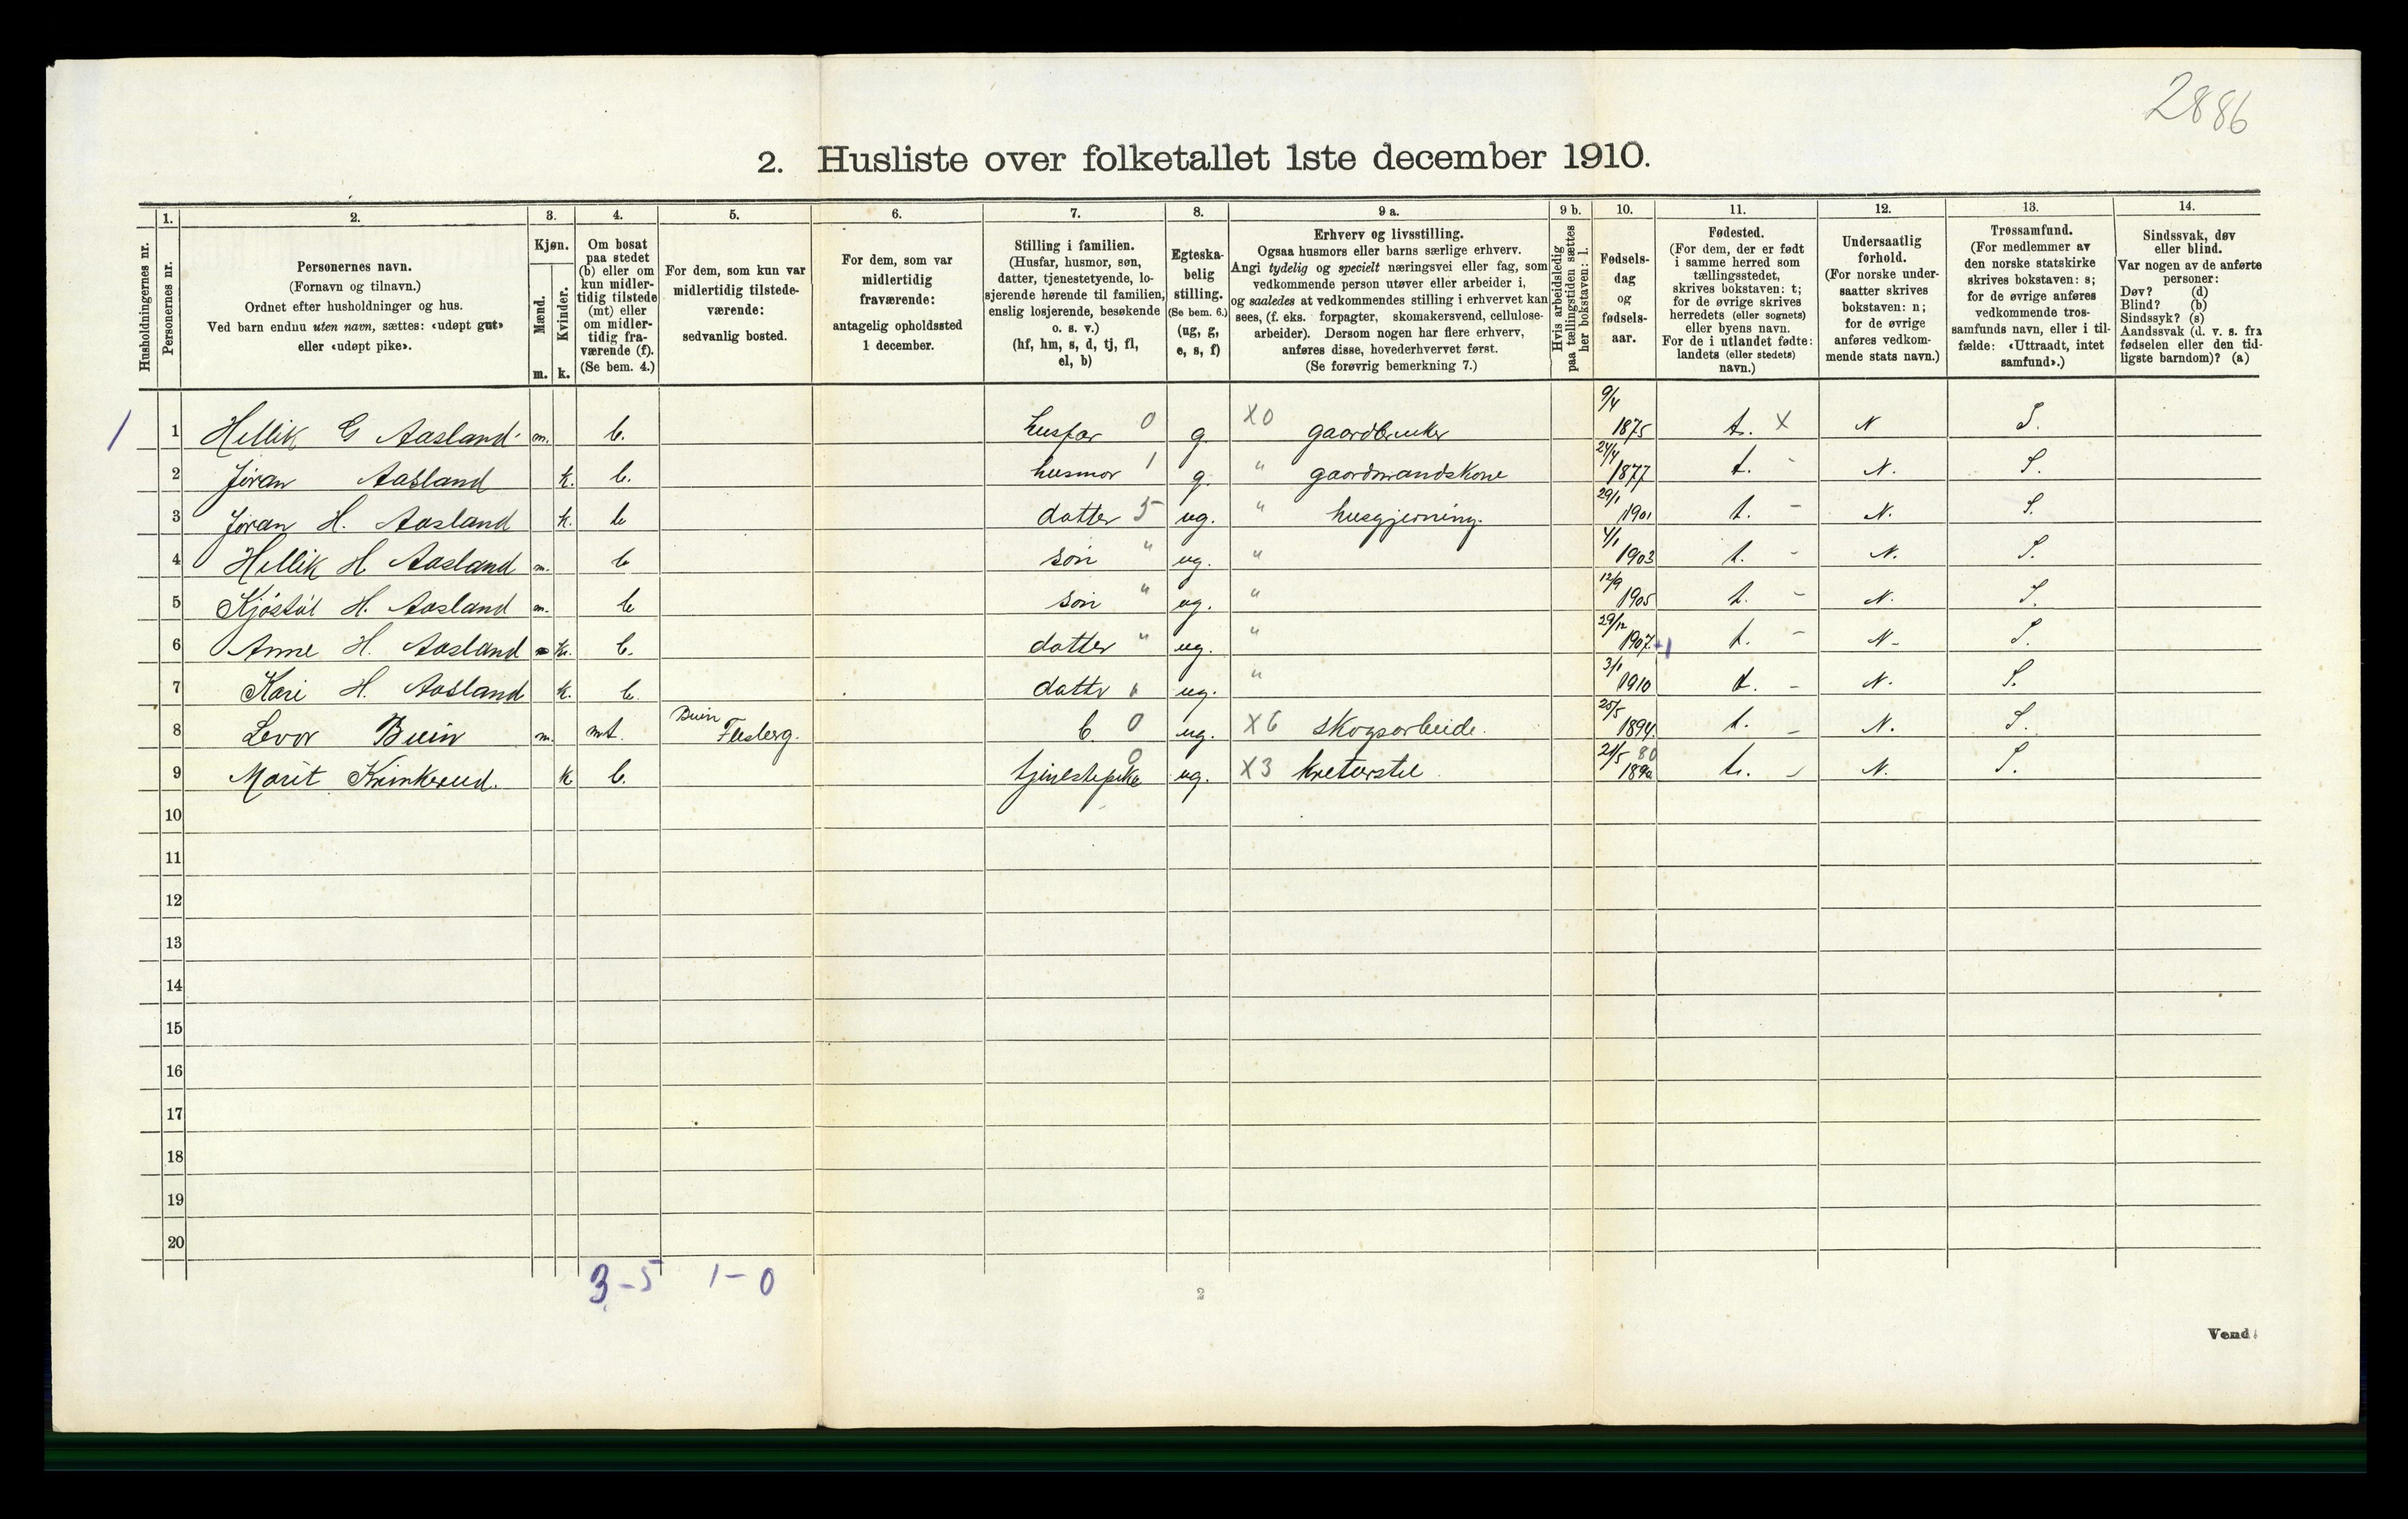 2886
2. Husliste over folketallet 1ste december 1910.
Husholdningernes nr.
1.
Personernes nr.
2.
Personernes navn.
(Fornavn og tilnavn.)
Ordnet efter husholdninger og hus.
Ved barn endnu uten navn, sættes: «udøpt gut»
eller «udøpt pike».
3.
Kjøn.
Mænd.
Kvinder.
m. k.
4.
Om bosat
paa stedet
(b) eller om
kun midler-
tidig tilstede
(mt) eller
om midler-
tidig fra-
værende (f).
(Se bem. 4.)
5.
For dem, som kun var
midlertidig tilstede-
værende:
sedvanlig bosted.
6.
For dem, som var
midlertidig
fraværende:
antagelig opholdssted
1 december.
7.
Stilling i familien.
(Husfar, husmor, søn,
datter, tjenestetyende, lo-
sjerende hørende til familien,
enslig losjerende, besøkende
o. s. v.)
(hf, hm, s, d, tj, fl,
el, b)
8.
Egteska-
belig
stilling.
(Se bem. 6.)
(ug, g,
e, s, f)
9 a.
Erhverv og livsstilling.
Ogsaa husmors eller barns særlige erhverv.
Angi tydelig og specielt næringsvei eller fag, som
vedkommende person utøver eller arbeider i,
og saaledes at vedkommendes stilling i erhvervet kan
sees, (f. eks. forpagter, skomakersvend, cellulose-
arbeider). Dersom nogen har flere erhverv,
anføres disse, hovederhvervet først.
(Se forøvrig bemerkning 7.)
9 b.
Hvis arbeidsledig
paa tællingstiden sættes
her bokstaven: l.
10.
Fødsels-
dag
og
fødsels-
aar.
11.
Fødested.
(For dem, der er født
i samme herred som
tællingsstedet,
skrives bokstaven: t;
for de øvrige skrives
herredets (eller sognets)
eller byens navn.
For de i utlandet fødte:
landets (eller stedets)
navn.)
12.
Undersaatlig
forhold.
(For norske under-
saatter skrives
bokstaven: n;
for de øvrige
anføres vedkom-
mende stats navn.)
13.
Trossamfund.
(For medlemmer av
den norske statskirke
skrives bokstaven: s;
for de øvrige anføres
vedkommende tros-
samfunds navn, eller i til-
fælde: «Uttraadt, intet
samfund».)
14.
Sindssvak, døv
eller blind.
Var nogen av de anførte
personer:
Døv? (d)
Blind? (b)
Sindssyk? (s)
Aandssvak (d. v. s. fra
fødselen eller den tid-
ligste barndom)? (a)
1 1 Hellik G Aasland m. b. husfar 0 g. X0 gaardbruker 9/4 1875 t. X N S.
2 Jøran Aasland k. b. husmor 1 g. " gaardmandskone 24/4 1877 t. - N. S.
3 Jøran H. Aasland k. b datter 5 ug. " husgjerning. 29/1 1901 t. - N. S.
4 Hellik H Aasland m. b søn " ug. " 4/1 1903 t. - N. S.
5 Kjøstøl H. Aasland m. b søn " ug. " 12/9 1905 t. - N. S.
6 Anne H. Aasland k. b. datter " ug. " 29/12 1907. +1 t. - N- S.
7 Kari H. Aasland k. b. datter " ug. " 3/1 1910 t. - N. S.
8 Levor Buin m. mt. Buin Flesberg. b. 0 ug. X6 skogsarbeide. 25/5 1894. t. - N. S.
9 Marit Krinkerud. k b. 0 ug. X3 kreturstel 21/5 80 t. - N. S.
10
11
12
13
14
15
16
17
18
19
20
3-5 1-0
2
Vend!